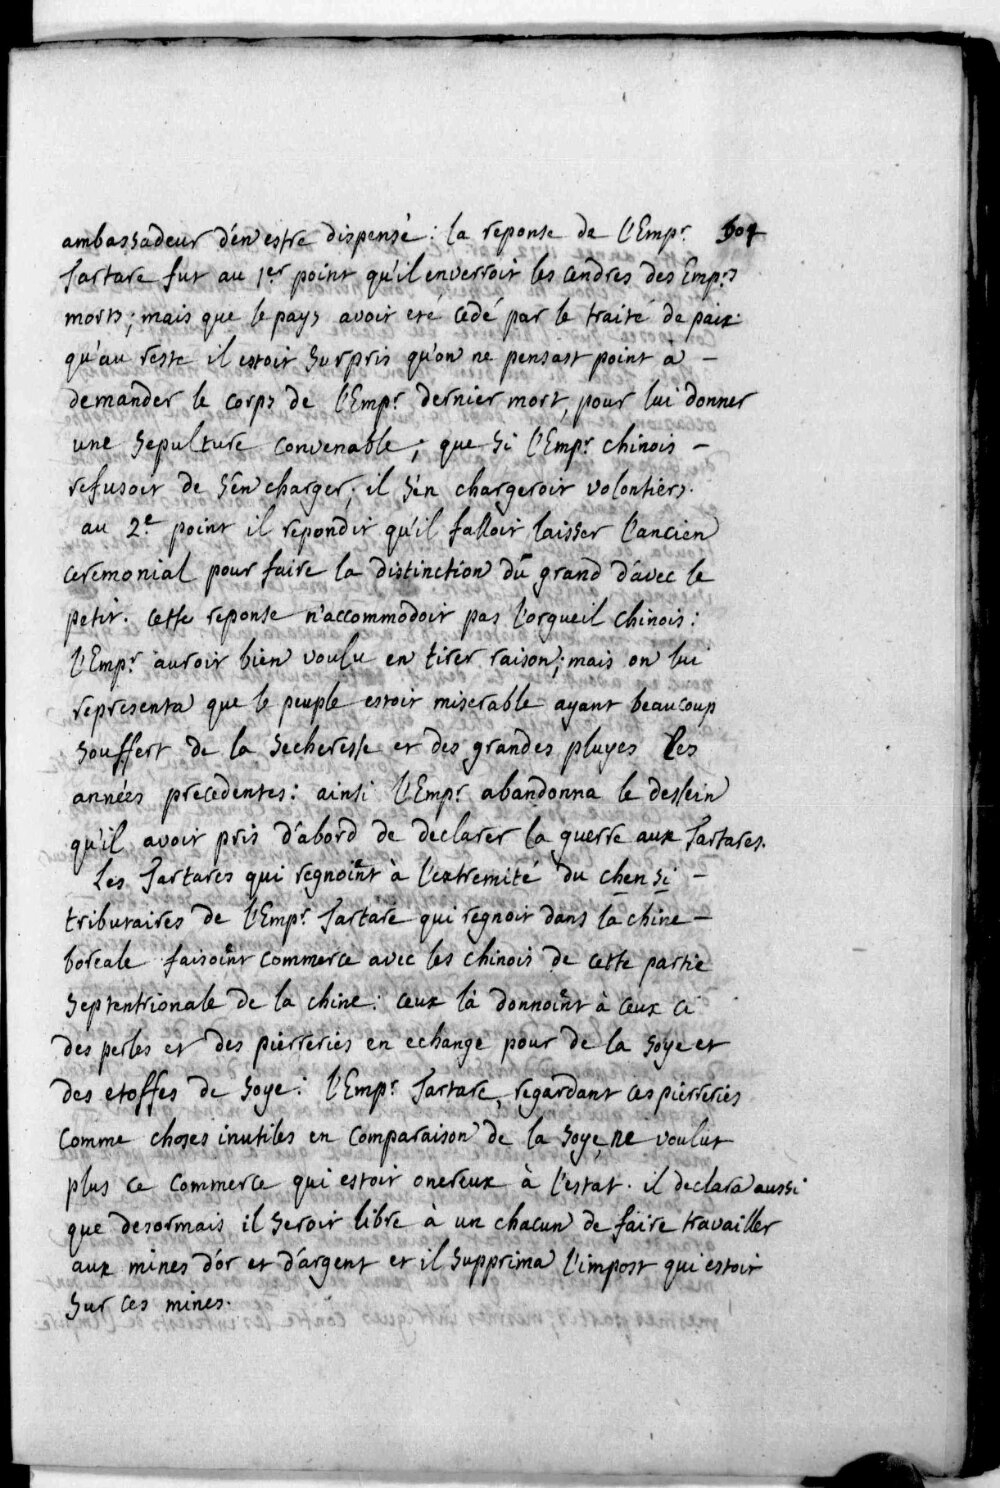 ambassadeur d'en estre dispensé: la reponse de l'Emp.r 504
Tartare fut au 1.er point qu'il enverroit les cendres des Emp.rs
morts; mais que le pays avoit eté cedé par le traité de paix.
qu'au reste il estoit surpris qu'on ne pensast point à –
demander le corps de l'Emp.r dernier mort, pour lui donner
une sepulture convenable; que si l'Emp.r chinois –
refusoit de s'en charger, il s'en chargeroit volontiers.
au 2.e point il repondit qu'il falloit laisser l'ancien
ceremonial pour faire la distinction du grand d'avec le
petit. cette reponse n'accommodoit pas l'orgueil chinois:
l'Emp.r auroit bien voulu en tirer raison; mais on lui
representa que le peuple estoit miserable ayant beaucoup
souffert de la secheresse et des grandes pluyes les
années precedentes: ainsi l'Emp.r abandonna le dessein
qu'il avoit pris d'abord de declarer la guerre aux Tartares.
Les Tartares qui regnoient à l'extremité du chen si –
tributaires de l'Emp.r Tartare qui regnoit dans la chine –
boreale faisoient commerce avec les chinois de cette partie
septentrionale de la chine: ceux là donnoient à ceux ci
des perles et des pierreries en echange pour de la soye et
des etoffes de soye: l'Emp.r Tartare, regardant ces pierreries
comme choses inutiles en comparaison de la soye, ne voulut
plus ce commerce qui estoit onereux à l'estat. il declara aussi
que desormais il seroit libre à un chacun de faire travailler
aux mines d'or et d'argent et il supprima l'impost qui estoit
sur ces mines.